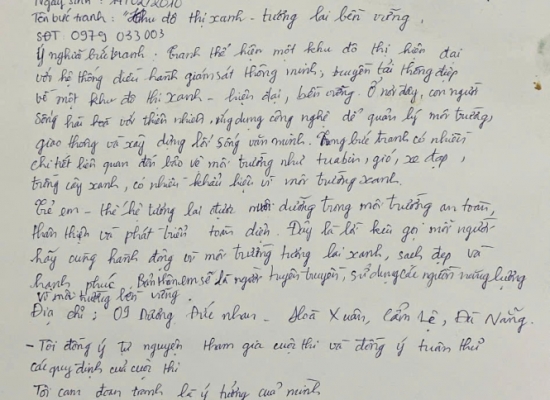 Ngày sinh : 14/02/2010
Tên bức tranh : "Khu đô thị xanh - tương lai bền vững.
SĐT 0979 033003
Ý nghĩa bức tranh : Tranh thể hiện một khu đô thị hiện đại
với hệ thống điều hành giám sát thông minh, truyền tải thông điệp
về một khu đô thị xanh - hiện đại, bền vững. Ở nơi đây, con người
sống hài hoà với thiên nhiên, ứng dụng công nghệ để quản lý môi trường,
giao thông và xây dựng lối sống văn minh. Trong bức tranh có nhiều
chi tiết liên quan đến bảo vệ môi trường như tuabin, gió, xe đạp,
trồng cây xanh, có nhiều khẩu hiệu vì môi trường xanh.
Trẻ em - thế hệ tương lai được nuôi dưỡng trong môi trường an toàn,
thân thiện và phát triển toàn diện. Đây là lời kêu gọi mỗi người
hãy cùng hành động vì môi trường tương lai xanh, sạch đẹp và
hạnh phúc. Bản thân em sẽ là người tuyên truyền, sử dụng các nguồn năng lượng
vì môi trường bền vững.
Địa chỉ : 09 Dương Đức Nhan - Hoà Xuân, Cẩm Lệ, Đà Nẵng.
- Tôi đồng ý tự nguyện tham gia cuộc thi và đồng ý tuân thủ
các quy định của cuộc thi
Tôi cam đoan tranh là ý tưởng của mình